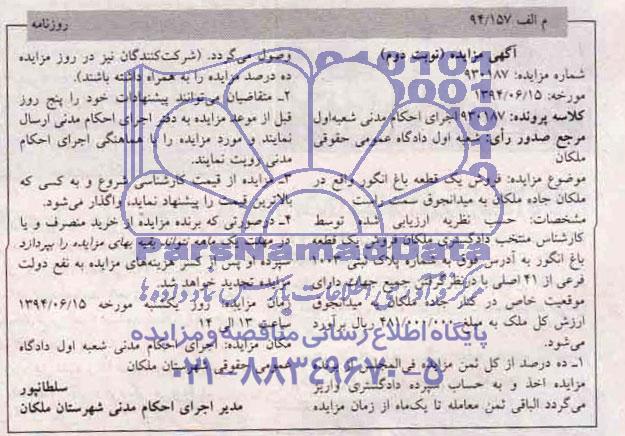 م الف ۹۴/۱۵۷
روزنامه
آگهی مزایده (نوبت دوم)
شماره مزایده: ۹۳۰۱۸۷
مورخه: ۱۳۹۴/۰۶/۱۵
کلاسه پرونده: ۹۳۰۱۸۷ اجرای احکام مدنی شعبه اول
مرجع صدور رأی: شعبه اول دادگاه عمومی حقوقی
ملکان
موضوع مزایده: فروش یک قطعه باغ انگور واقع در
ملکان جاده ملکان به میدانجوق سمت راست
مشخصات: حسب نظریه ارزیابی شده توسط
کارشناس منتخب دادگستری ملکان فروش یک قطعه
باغ انگور به آدرس فوق به شماره پلاک ثبتی
فرعی از ۴۱ اصلی با درنظرگرفتن جمیع جهات دارای
موقعیت خاص در کنار جاده ملکان به میدانجوق
ارزش کل ملک به مبلغ ریال برآورد
می‌شود.
۱ـ ده درصد از کل ثمن مزایده فی‌المجلس از برنده
مزایده اخذ و به حساب سپرده دادگستری واریز
می‌گردد الباقی ثمن معامله تا یک‌ماه از زمان مزایده
وصول می‌گردد. (شرکت‌کنندگان نیز در روز مزایده
ده درصد مزایده را به همراه داشته باشند).
۲ـ متقاضیان می‌توانند پیشنهادات خود را پنج روز
قبل از موعد مزایده به دفتر اجرای احکام مدنی ارسال
نمایند و مورد مزایده را با هماهنگی اجرای احکام
مدنی رویت نمایند.
۳ـ مزایده از قیمت کارشناسی شروع و به کسی که
بالاترین قیمت را پیشنهاد نماید، واگذار می‌شود.
۴ـ درصورتی که برنده مزایده از خرید منصرف و یا
در مهلت یک ماهه نتواند بقیه بهای مزایده را بپردازد
سپرده او پس از کسر هزینه‌های مزایده به نفع دولت
مزایده تجدید خواهد شد.
زمان مزایده: روز یکشنبه مورخه ۱۳۹۴/۰۶/۱۵
ساعت ۱۳ الی ۱۴
مکان مزایده: اجرای احکام مدنی شعبه اول دادگاه
عمومی حقوقی شهرستان ملکان
سلطانپور
مدیر اجرای احکام مدنی شهرستان ملکان
ParsNamadData
پایگاه اطلاع رسانی مناقصه و مزایده
۰۲۱-۸۸۳۴۹۶۷۰-۵